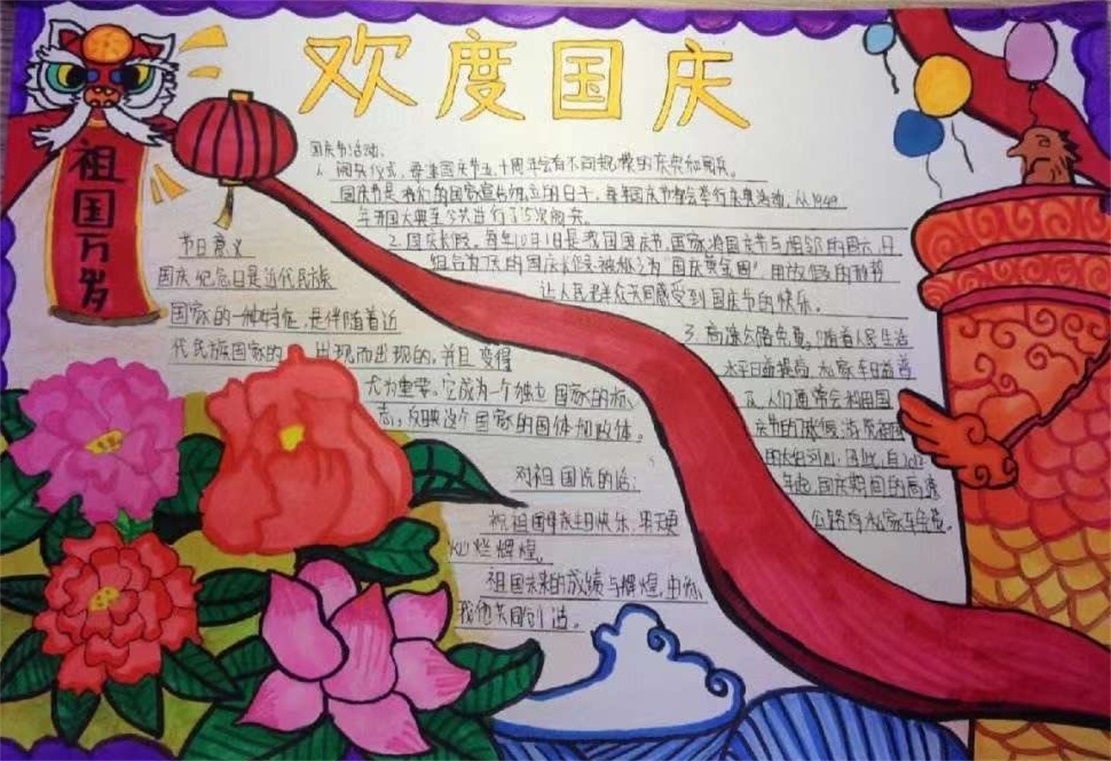 欢度国庆
祖国万岁
国庆节活动:
1. 阅兵仪式,每逢国庆节五、十周年会有不同规模的庆典和阅兵。
国庆节是我们的国家宣告独立的日子,每年国庆节都会举行庆典活动,从1949
年开国大典至今共进行了15次阅兵。
2. 国庆长假。每年10月1日是我国国庆节,国家将国庆节与相邻的周六、日
组合为7天的国庆长假,被称之为"国庆黄金周"用放假的种节
让人民群众共同感受到国庆节的快乐。
3. 高速公路免费。随着人民生活
水平日益提高,私家车日益普
及,人们通常会利用国
庆节的7天假,游览祖国
的大好河山,因此,自2012
年起,国庆期间的高速
公路向私家车免费。
节日意义
国庆纪念日是近代民族
国家的一种特征,是伴随着近
代民族国家的出现而出现的,并且变得
尤为重要。它成为一个独立国家的标
志,反映这个国家的国体和政体。
对祖国说的话:
祝祖国母亲生日快乐,果更
灿烂辉煌。
祖国未来的成绩与辉煌,由你
我他共同创造。